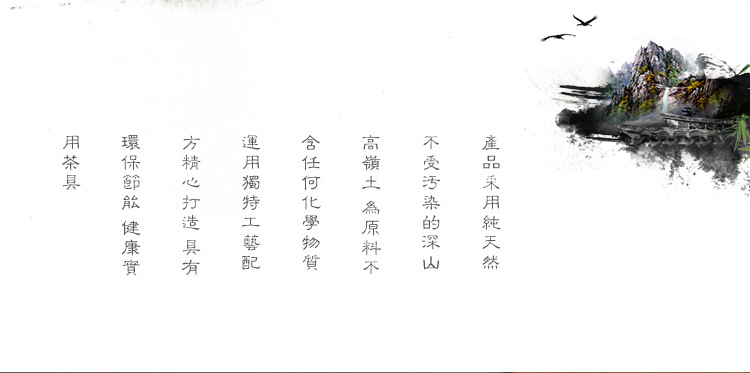 產品采用純天然
不受汚染的深山
高嶺土 為原料不
含任何化學物質
運用獨特工藝配
方精心打造 具有
環保節能 健康實
用茶具